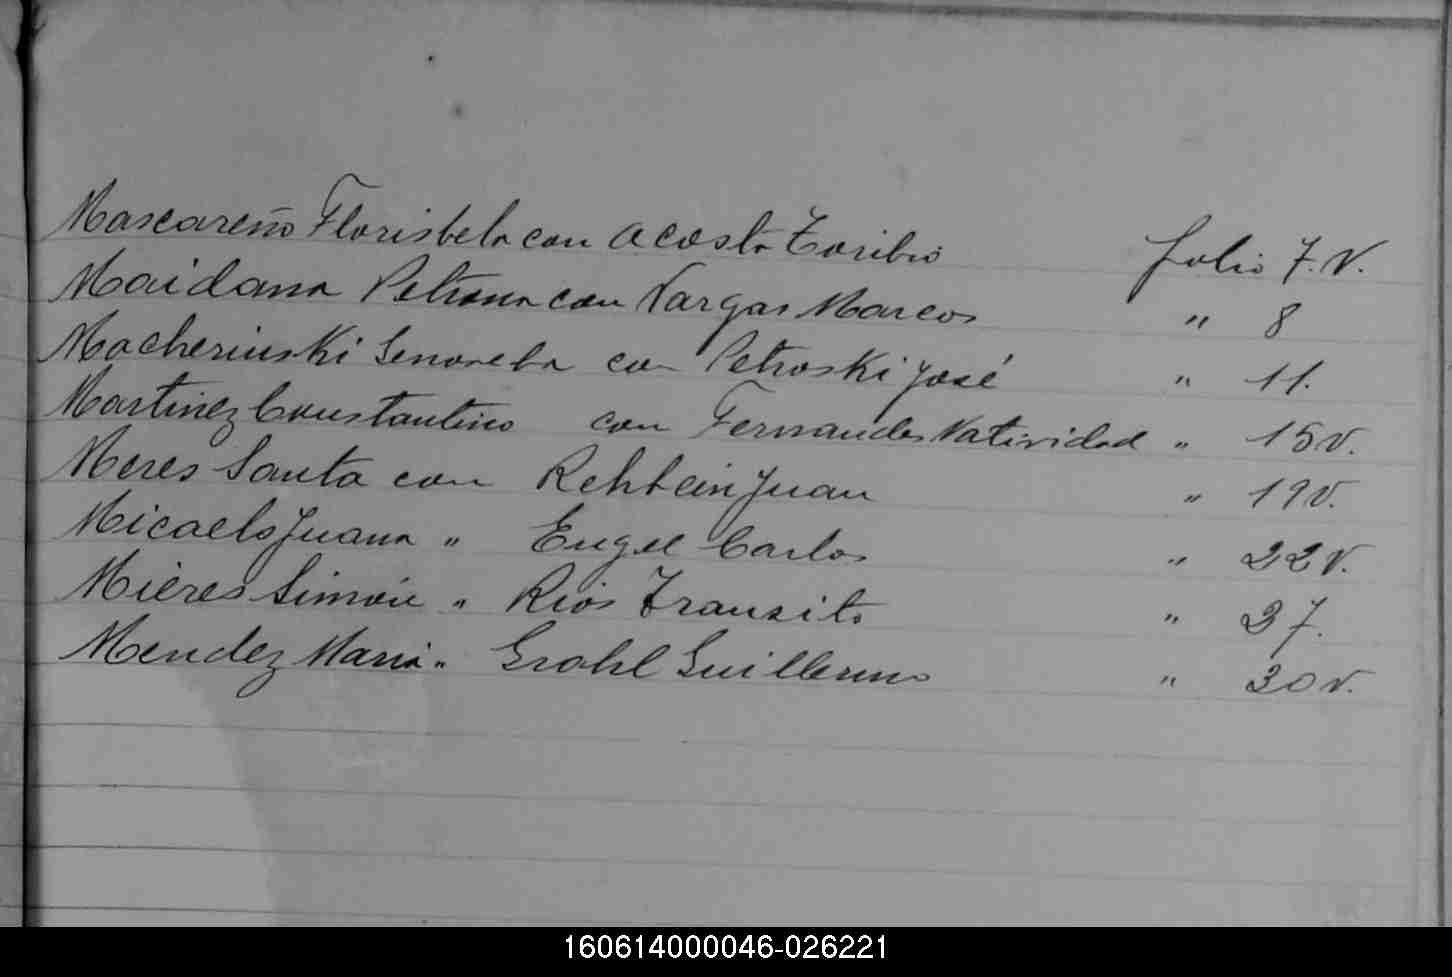 Mascareño Florisbela con Acosta Toribio folio 7.v.
Maidana Petrona con Vargas Marcos " 8
Macherinski Genoveba con Petroski José " 11.
Martinez Constantino con Fernandes Natividad " 15v.
Meres Santa con Rehbein Juan " 19v.
Micaels Juana " Engel Carlos " 22v.
Mieres Simón " Rios Transito " 27.
Mendez Maria " Grahl Guillermo " 30v.
160614000046-026221